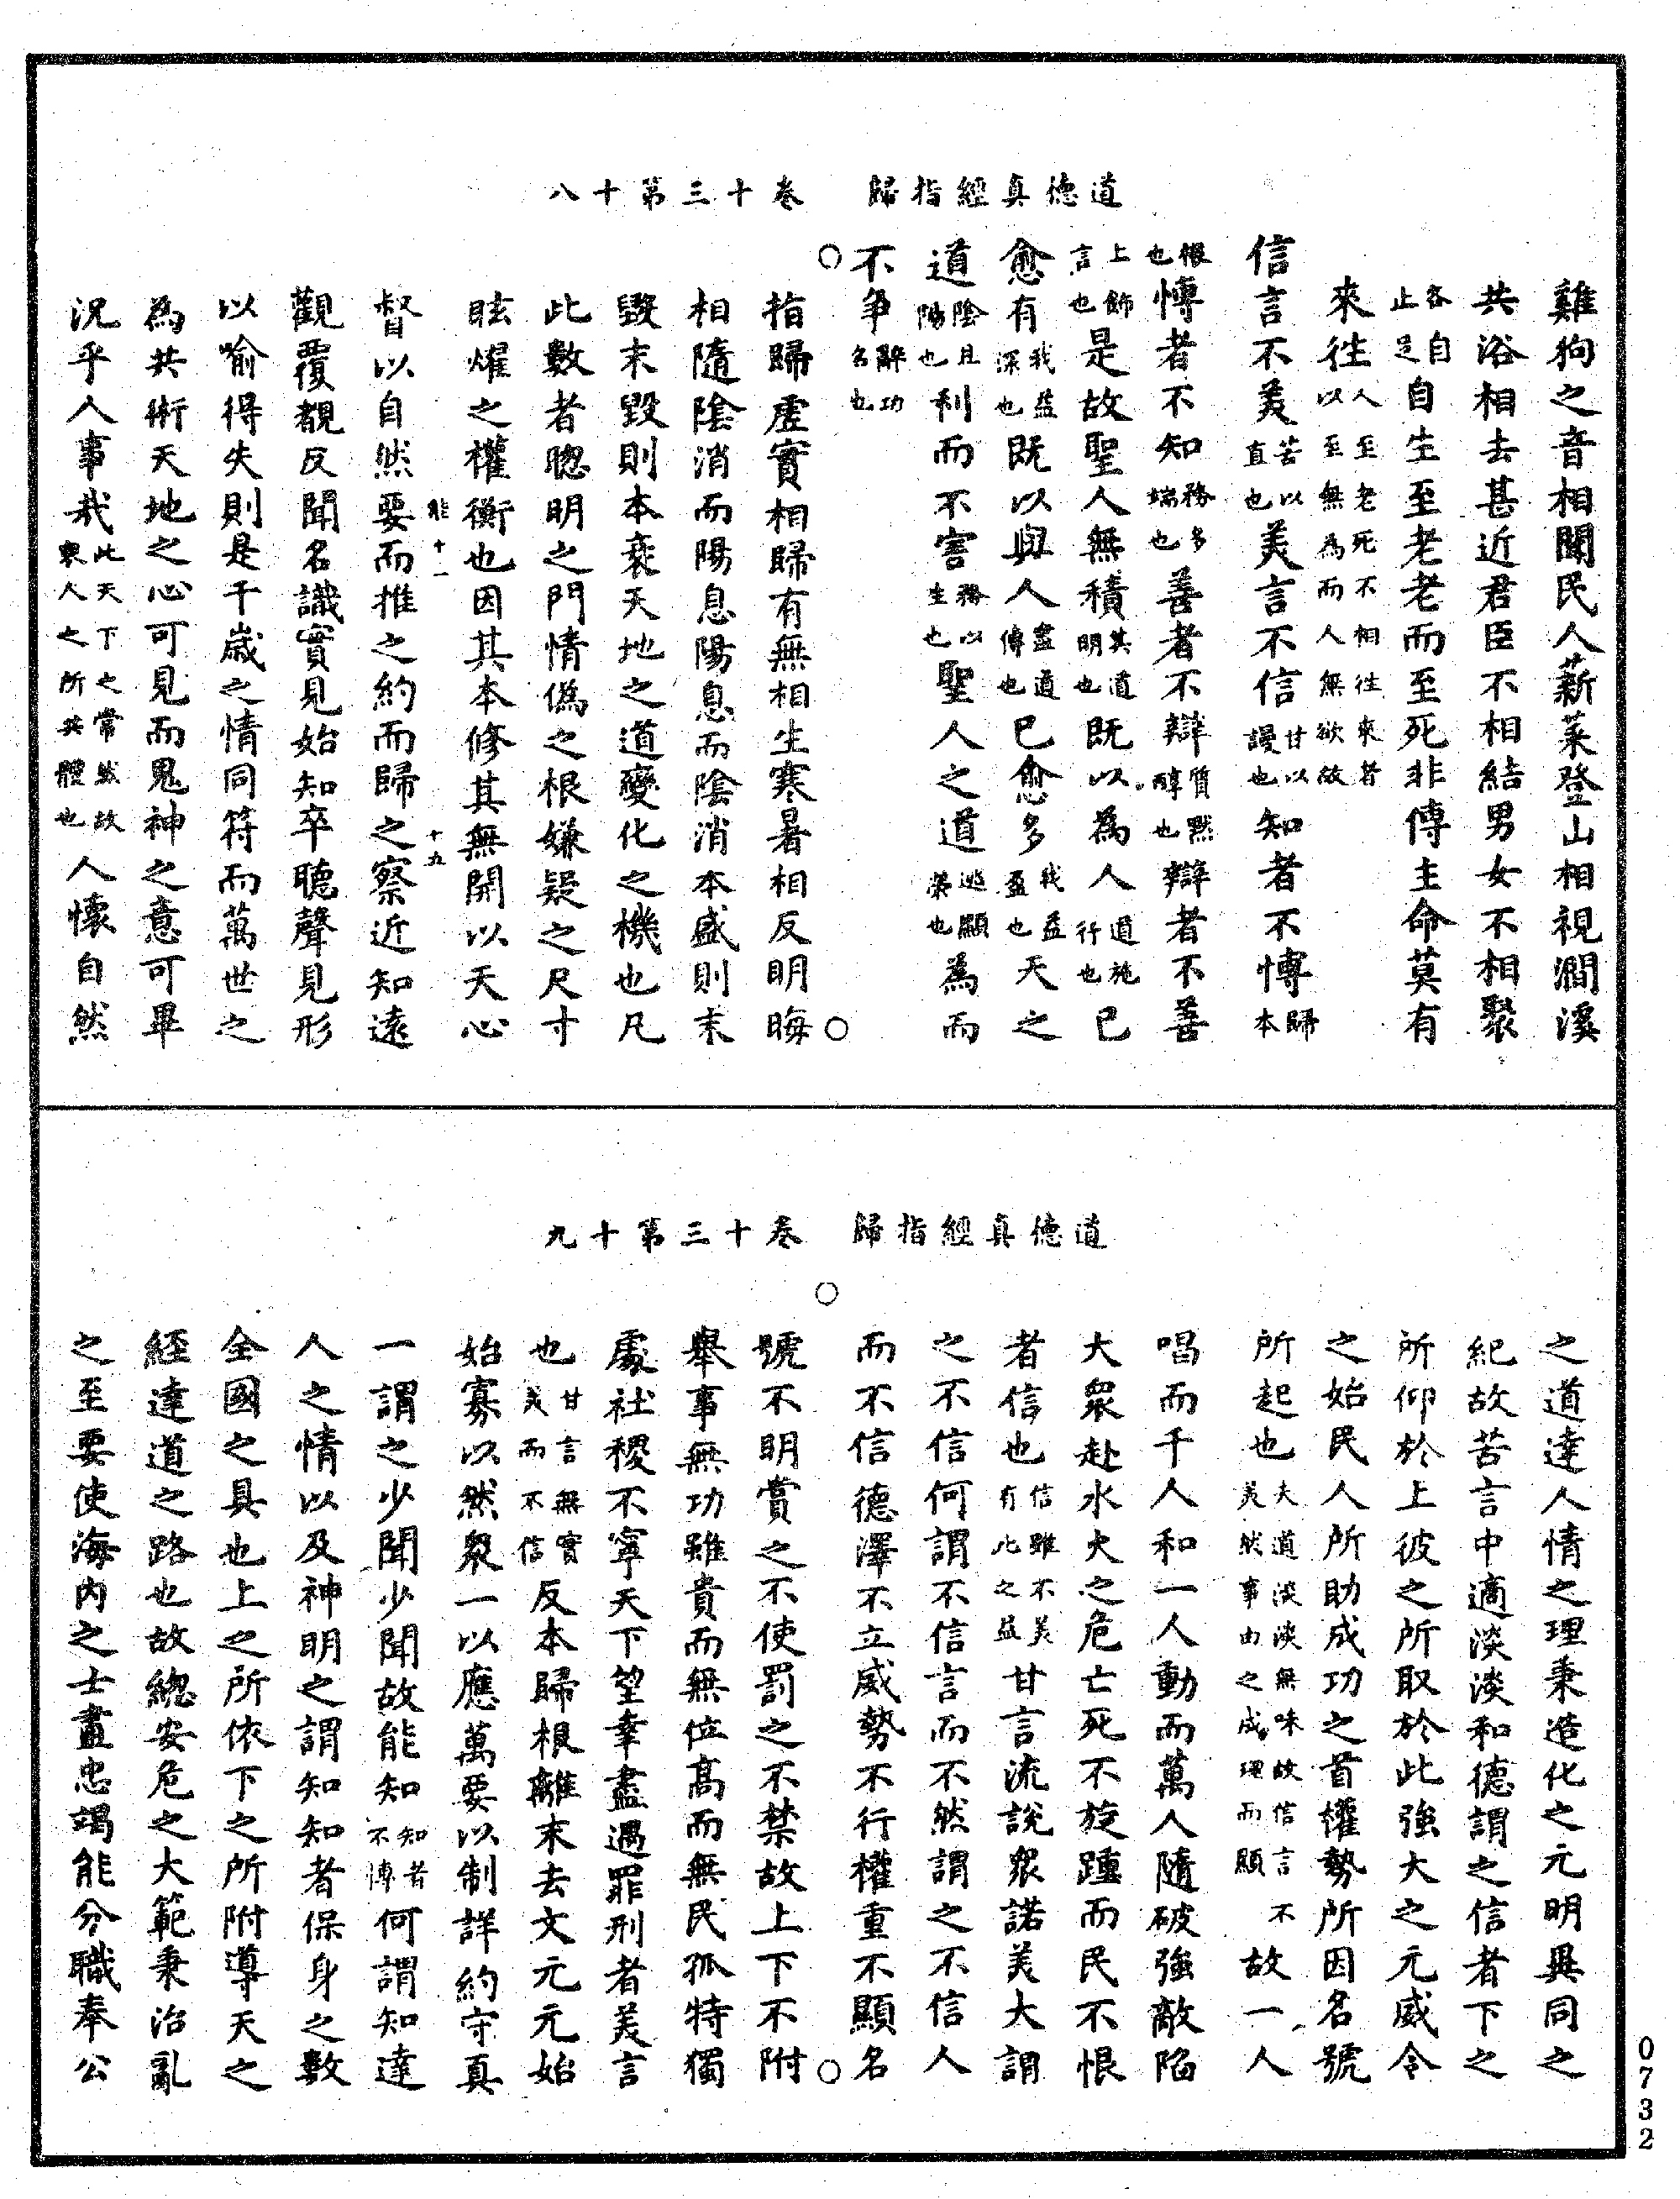 道德真經指歸　卷十三第十八
雞狗之音相聞民人薪菜登山相視澗溪
共浴相去甚近君臣不相結男女不相聚
各自止足自生至老老而至死非傳主命莫有
來往人至老死不相往來者以至無為而人無欲故
信言不美苦以直也美言不信甘以謾也知者不博歸本
根也博者不知務多端也善者不辯質黙醇也辯者不善
上飾言也是故聖人無積其道明也既以為人道施行也已
愈有我益深也既以與人盡道傳也已愈多我益盈也天之
道陰且陽也利而不害務以生也聖人之道逃顯榮也為而
不争辭功名也
指歸虛實相歸有無相生寒暑相反明晦
相隨陰消而陽息陽息而陰消本盛則末
毀末毀則本衰天地之道變化之機也凡
此數者聦明之門情偽之根嫌疑之尺寸
眩燿之權衡也因其本修其無開以天心
能十一　十五
督以自然要而推之約而歸之察近知遠
觀覆覩反聞名識實見始知卒聽聲見形
以喻得失則是千嵗之情同符而萬世之
為共術天地之心可見而鬼神之意可畢
況乎人事㢤此天下之常然故衆人之所共體也人懷自然
道德真經指歸　卷十三第十九
之道達人情之理秉造化之元明異同之
紀故苦言中適淡淡和德謂之信者下之
所仰於上彼之所取於此強大之元威令
之始民人所助成功之首權勢所因名號
所起也夫道淡淡無味故信言不美然事由之成理而顯故一人
唱而千人和一人動而萬人隨破強敵陷
大衆赴水火之危亡死不旋踵而民不恨
者信也信雖不美有此之益甘言流說衆諾美大謂
之不信何謂不信言而不然謂之不信人
而不信德澤不立威勢不行權重不顯名
號不明賞之不使罰之不禁故上下不附
舉事無功雖貴而無位高而無民孤特獨
處社稷不寧天下望幸盡遇罪刑者美言
也甘言無實美而不信反本歸根離末去文元元始
始寡以然衆一以應萬要以制詳約守真
一謂之少聞少聞故能知知者不博何謂知達
人之情以及神明之謂知知者保身之數
全國之具也上之所依下之所附導天之
經達道之路也故緫安危之大範秉治亂
之至要使海内之士盡忠竭能分職奉公
0732